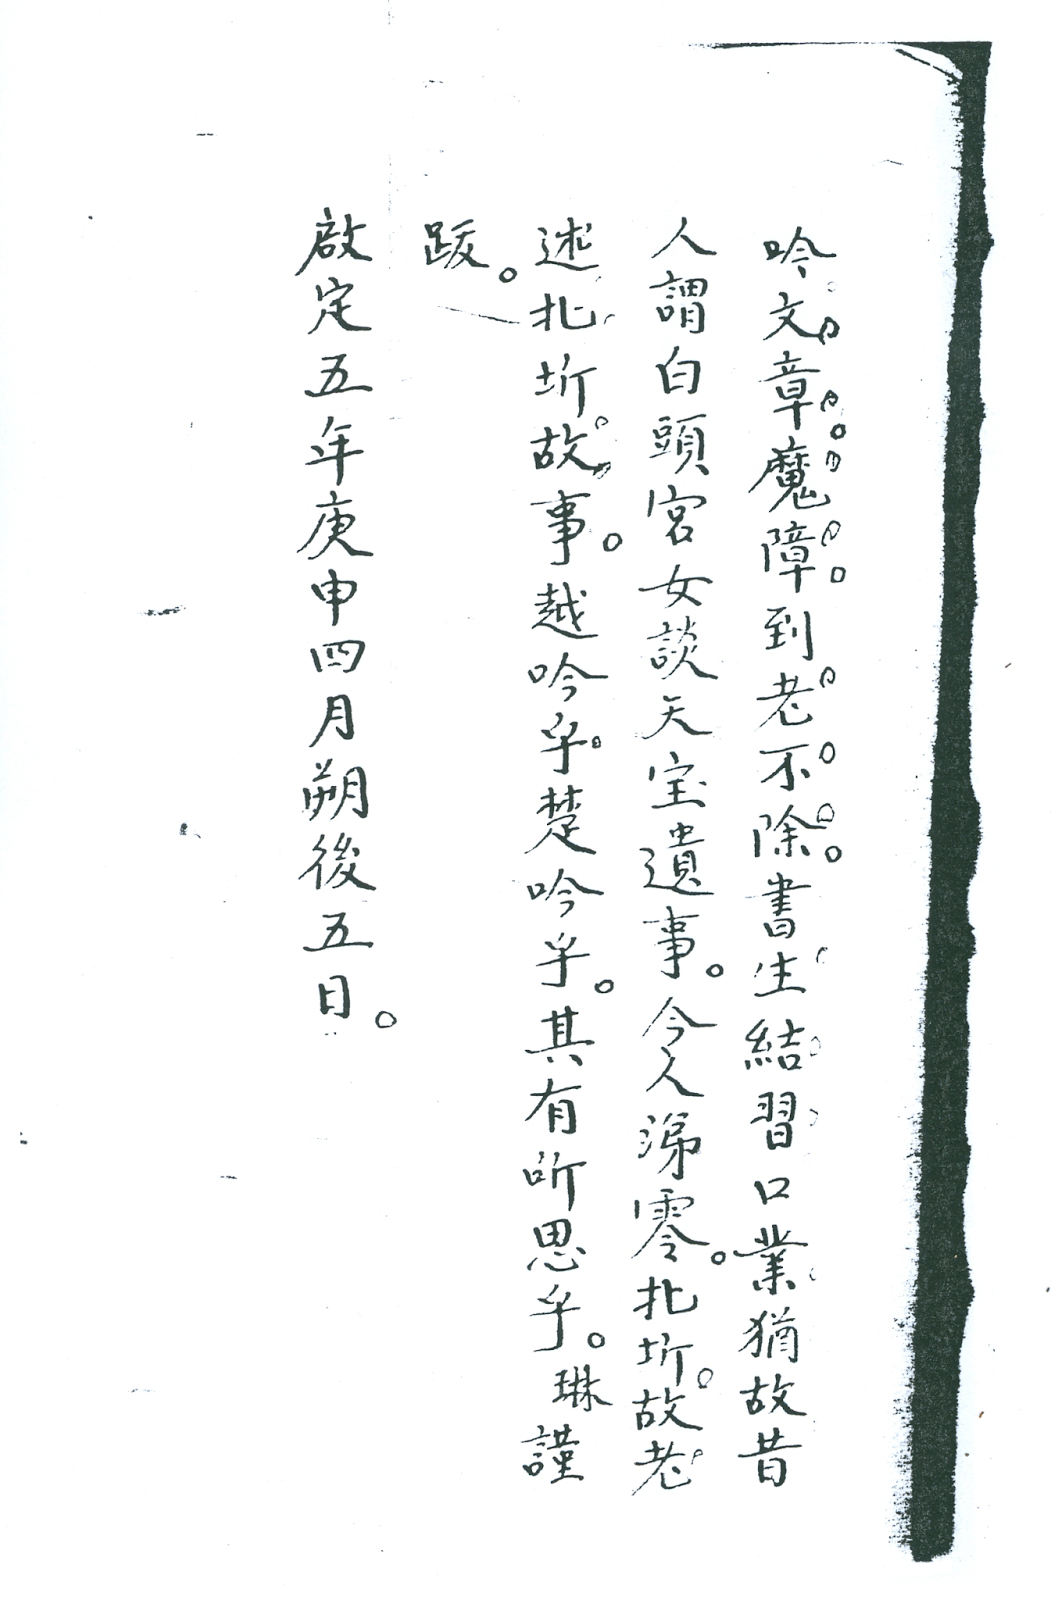 吟文章。魔障。到老不除。書生結習口業猶故昔
人謂白頭宮女談天宝遺事。令人涕零。北圻。故老
述北圻。故事。越吟乎。楚吟乎。其有所思乎。琳謹
跋。
啟定五年庚申四月朔後五日。